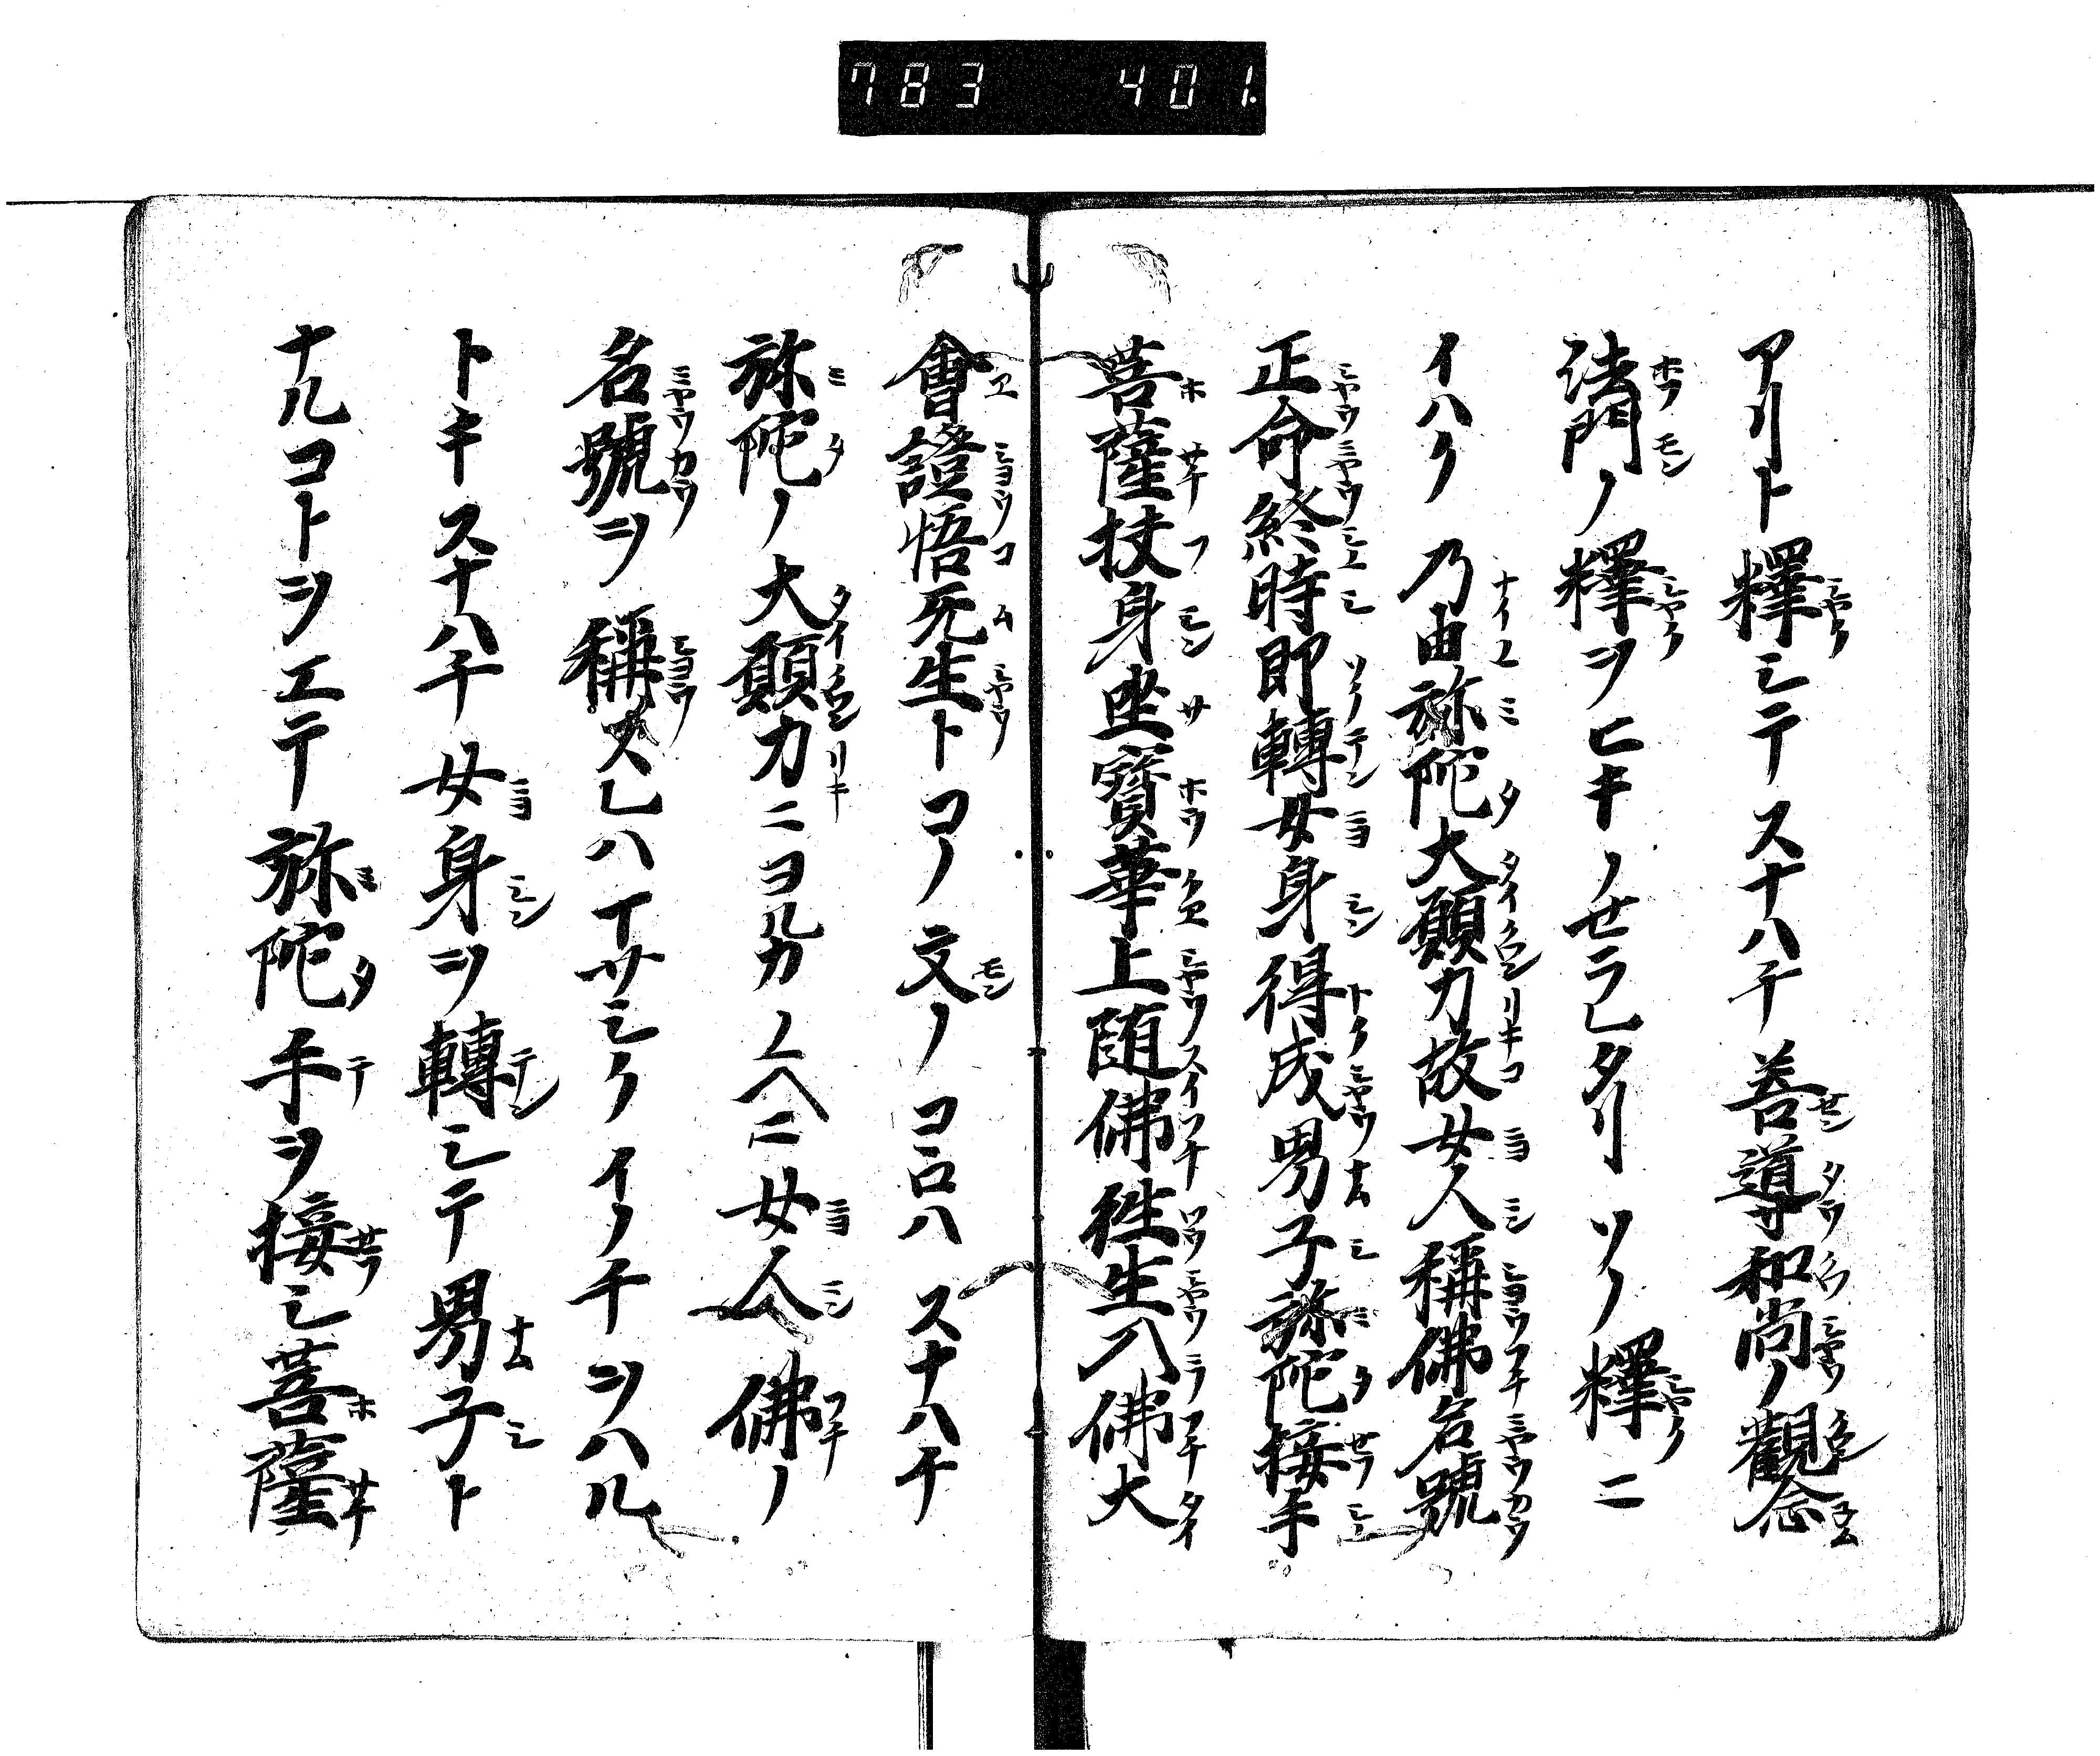 783 401
アリト釋シテスナハチ善導和尚ノ觀念
法門ノ釋ヲヒキノセラレタリソノ釋ニ
イハク乃由弥陀大願力故女人稱佛名號
正命終時即轉女身得成男子弥陀接手
菩薩扶身坐寳華上随佛徃生入佛大
會證悟无生トコノ文ノコヽロハスナハチ
弥陀ノ大願力ニヨルカノヘニ女人佛ノ
名號ヲ稱スレハマサシクイノチヲハル
トキスナハチ女身ヲ轉シテ男子ト
ナルコトヲエテ弥陀手ヲ接シ菩薩